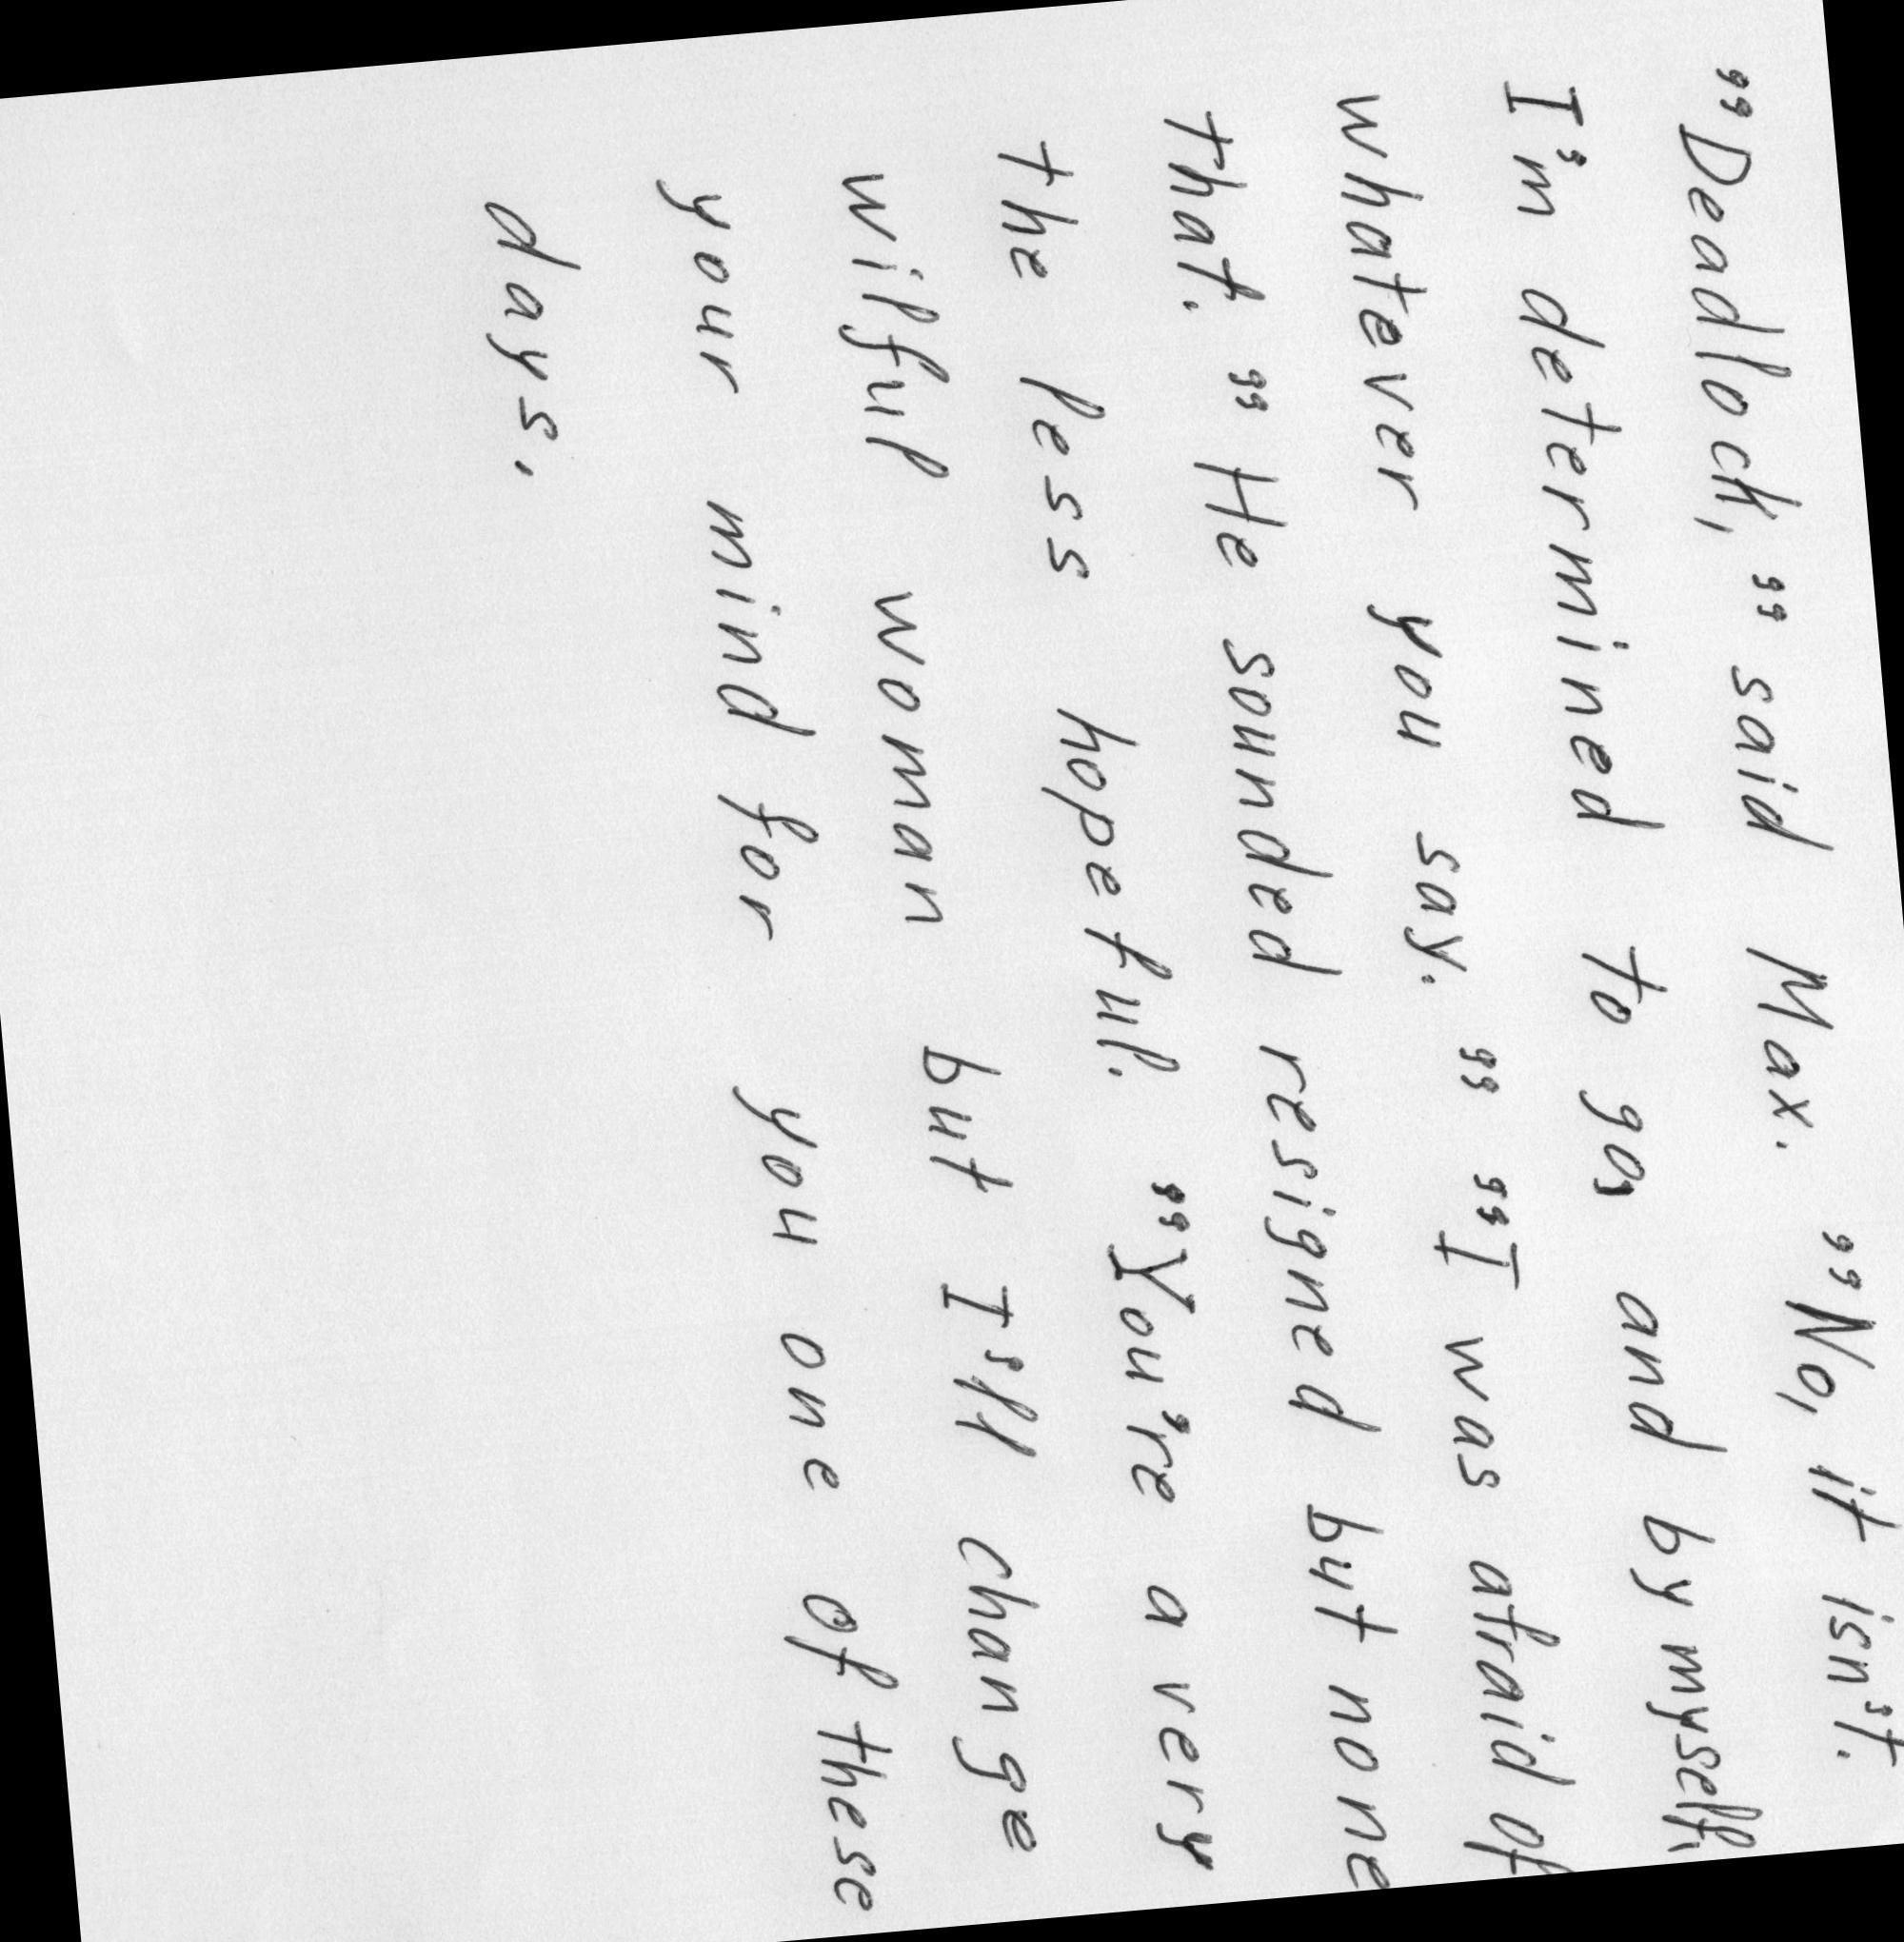 "Deadlock," said Max. "No, it isn't.
I'm determined to go, and by myself,
whatever you say." "I was afraid of
that." He sounded resigned but none
the less hopeful. "You're a very
wilful woman but I'll change
your mind for you one of these
days.